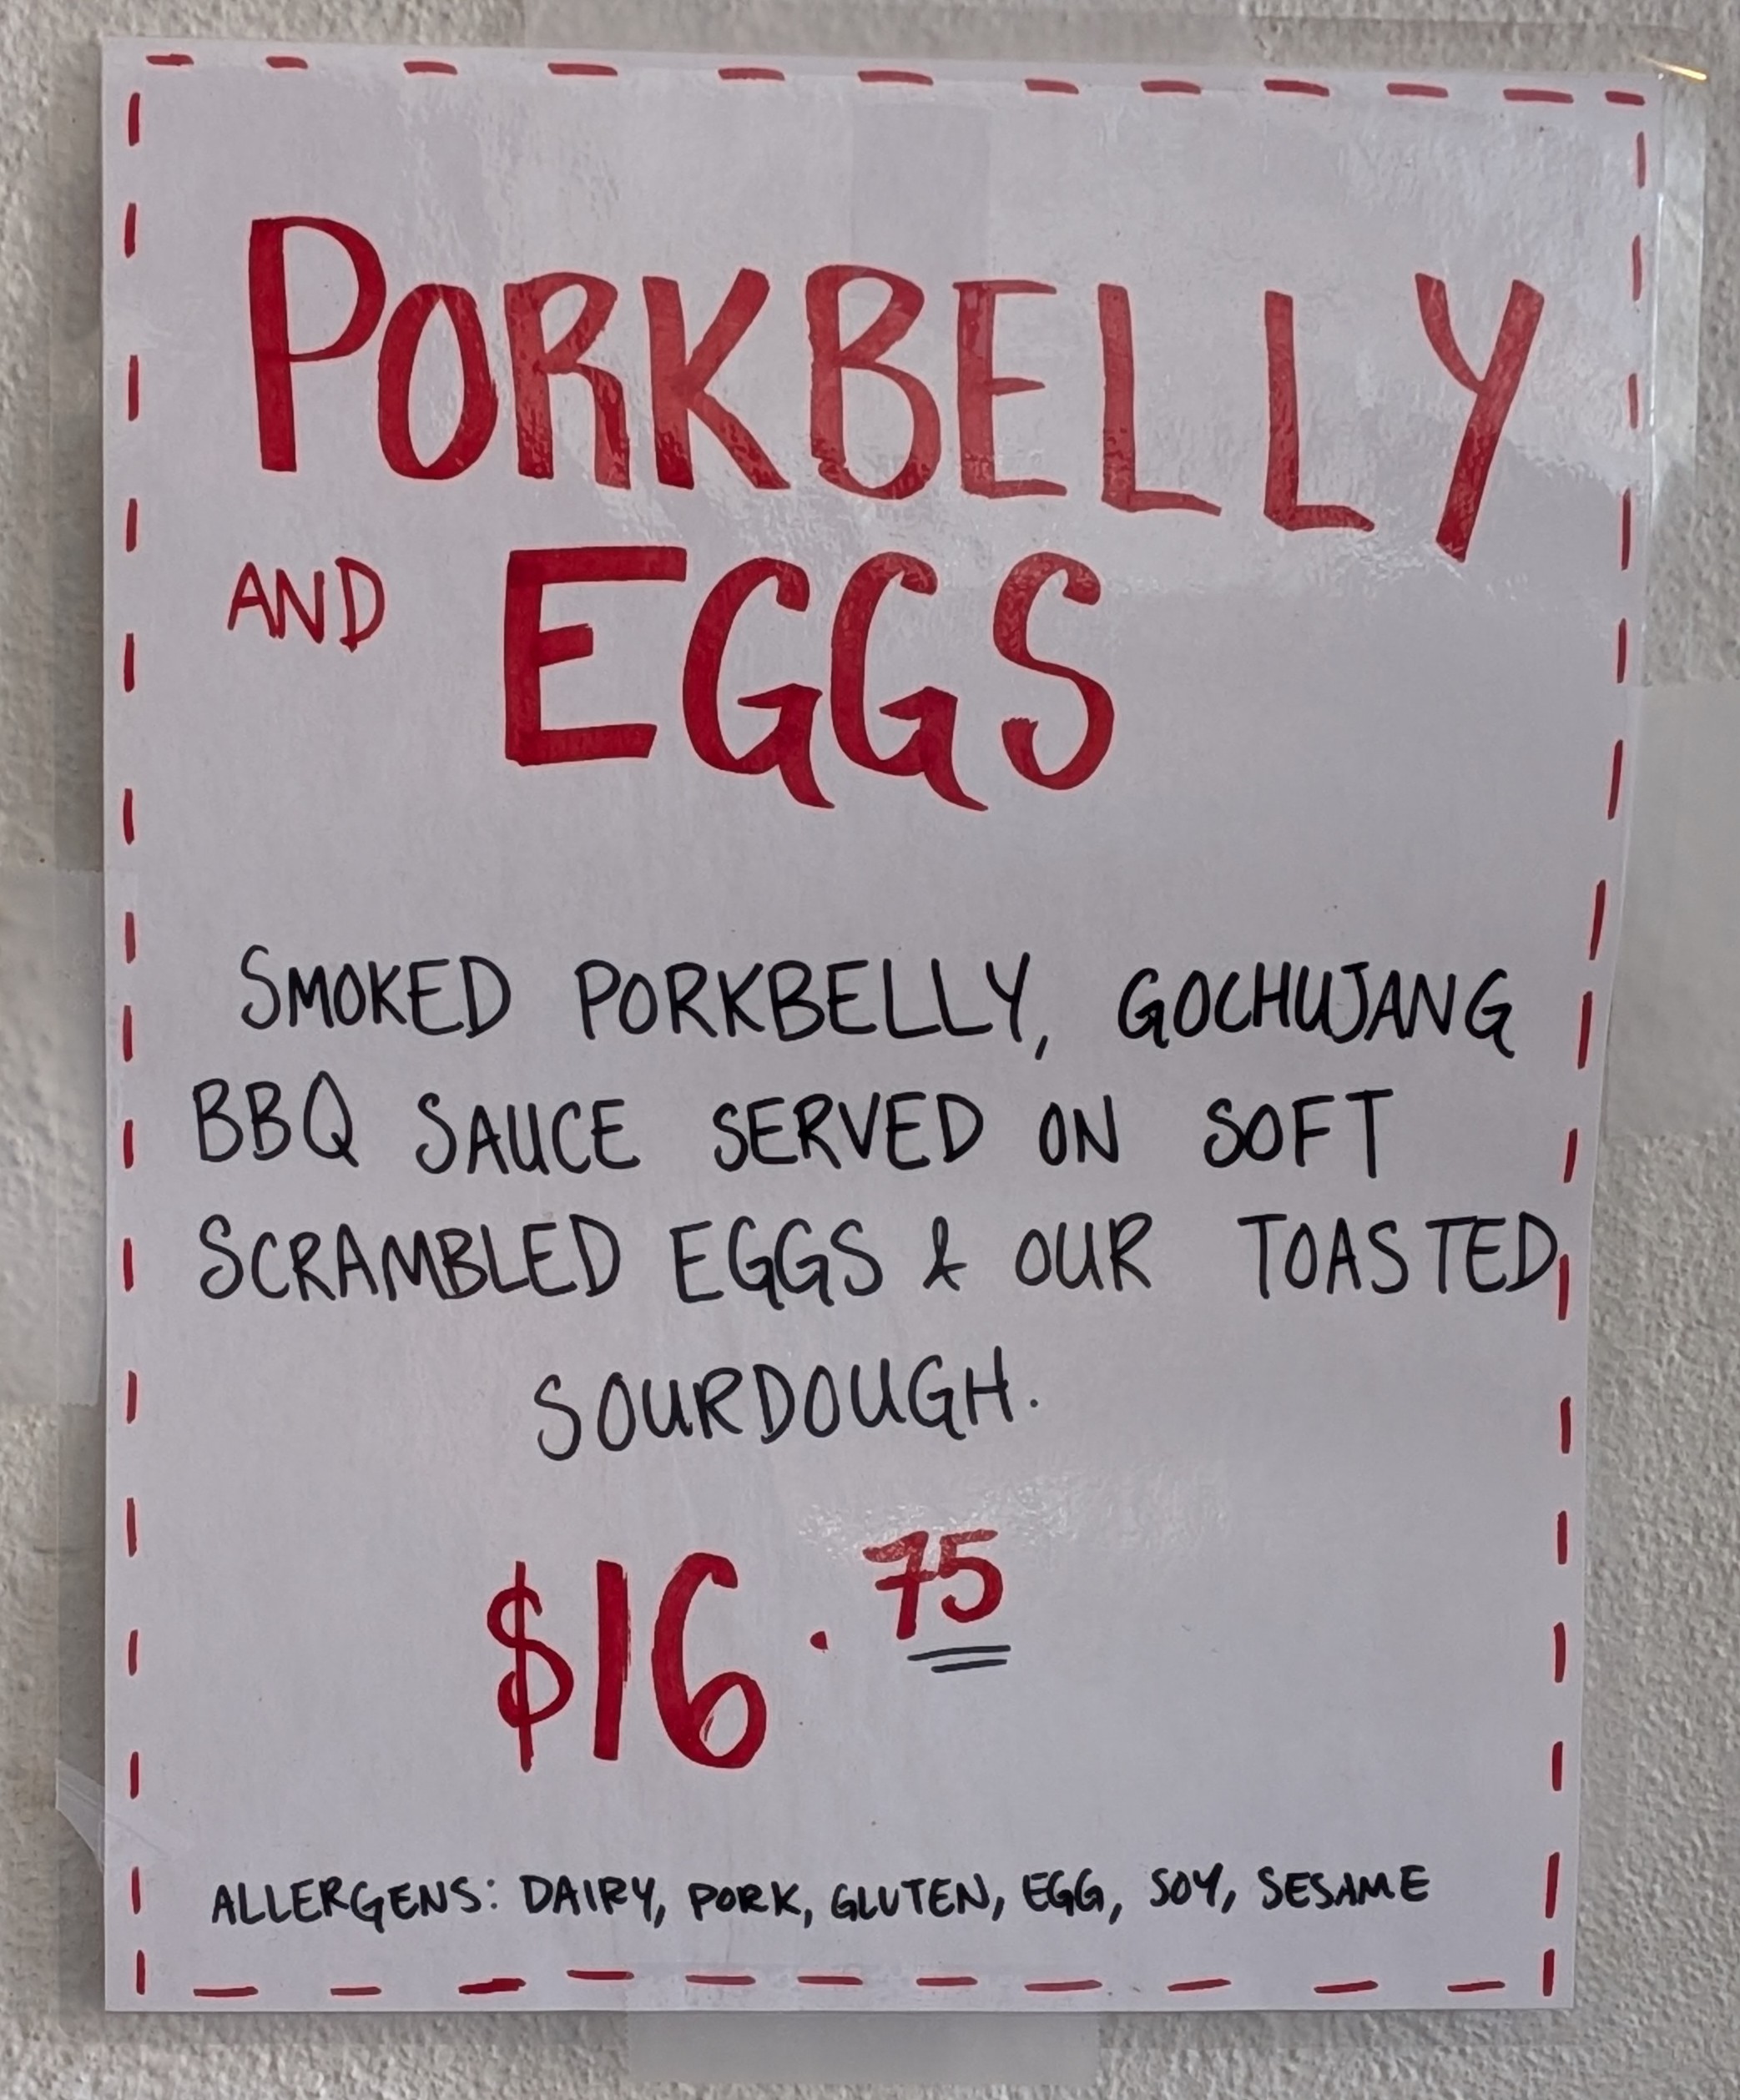 PORKBELLY
AND EGGS
SMOKED PORKBELLY, GOCHUJANG
BBQ SAUCE SERVED ON SOFT
SCRAMBLED EGGS & OUR TOASTED
SOURDOUGH.
$16.75
ALLERGENS: DAIRY, PORK, GLUTEN, EGG, SOY, SESAME